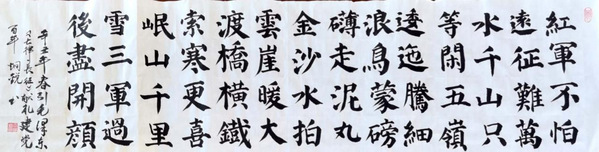 紅軍不怕
遠征難萬
水千山只
等閑五嶺
逶迤騰細
浪烏蒙磅
礴走泥丸
金沙水拍
雲崖暖大
渡橋橫鐵
索寒更喜
岷山千里
雪三軍過
後盡開顏
辛丑年春引毛澤東
七律長征獻礼建党
百年 书